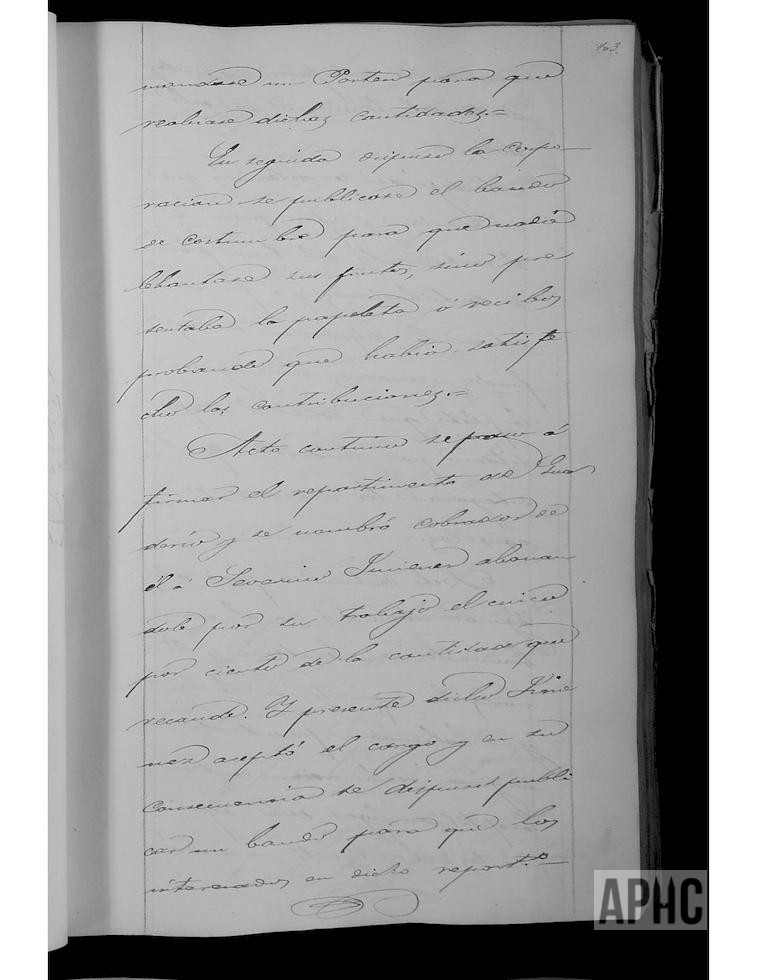 103.
mandase un Porter para que
realizase dichas cantidades.=
En seguida dispuso la corpo-
racion se publicase el bando
de costumbre para que nadie
lebantase sus frutos, sino pre
sentaba la papeleta ó recibos
probando que habia satisfe
cho las contribuciones.=
Acto continuo se paso á
firmar el repartimento de Gua
derio y se nombró cobrador de
él á Severino Jimenez abonan
dole por su trabajo el cinco
por ciento de la cantidad que
recaude. Y presente dicho Jime
nez aceptó el cargo y en su
consecuencia se dispuso publi
car un bando para que los
interesados en dicho repart.º
APHC